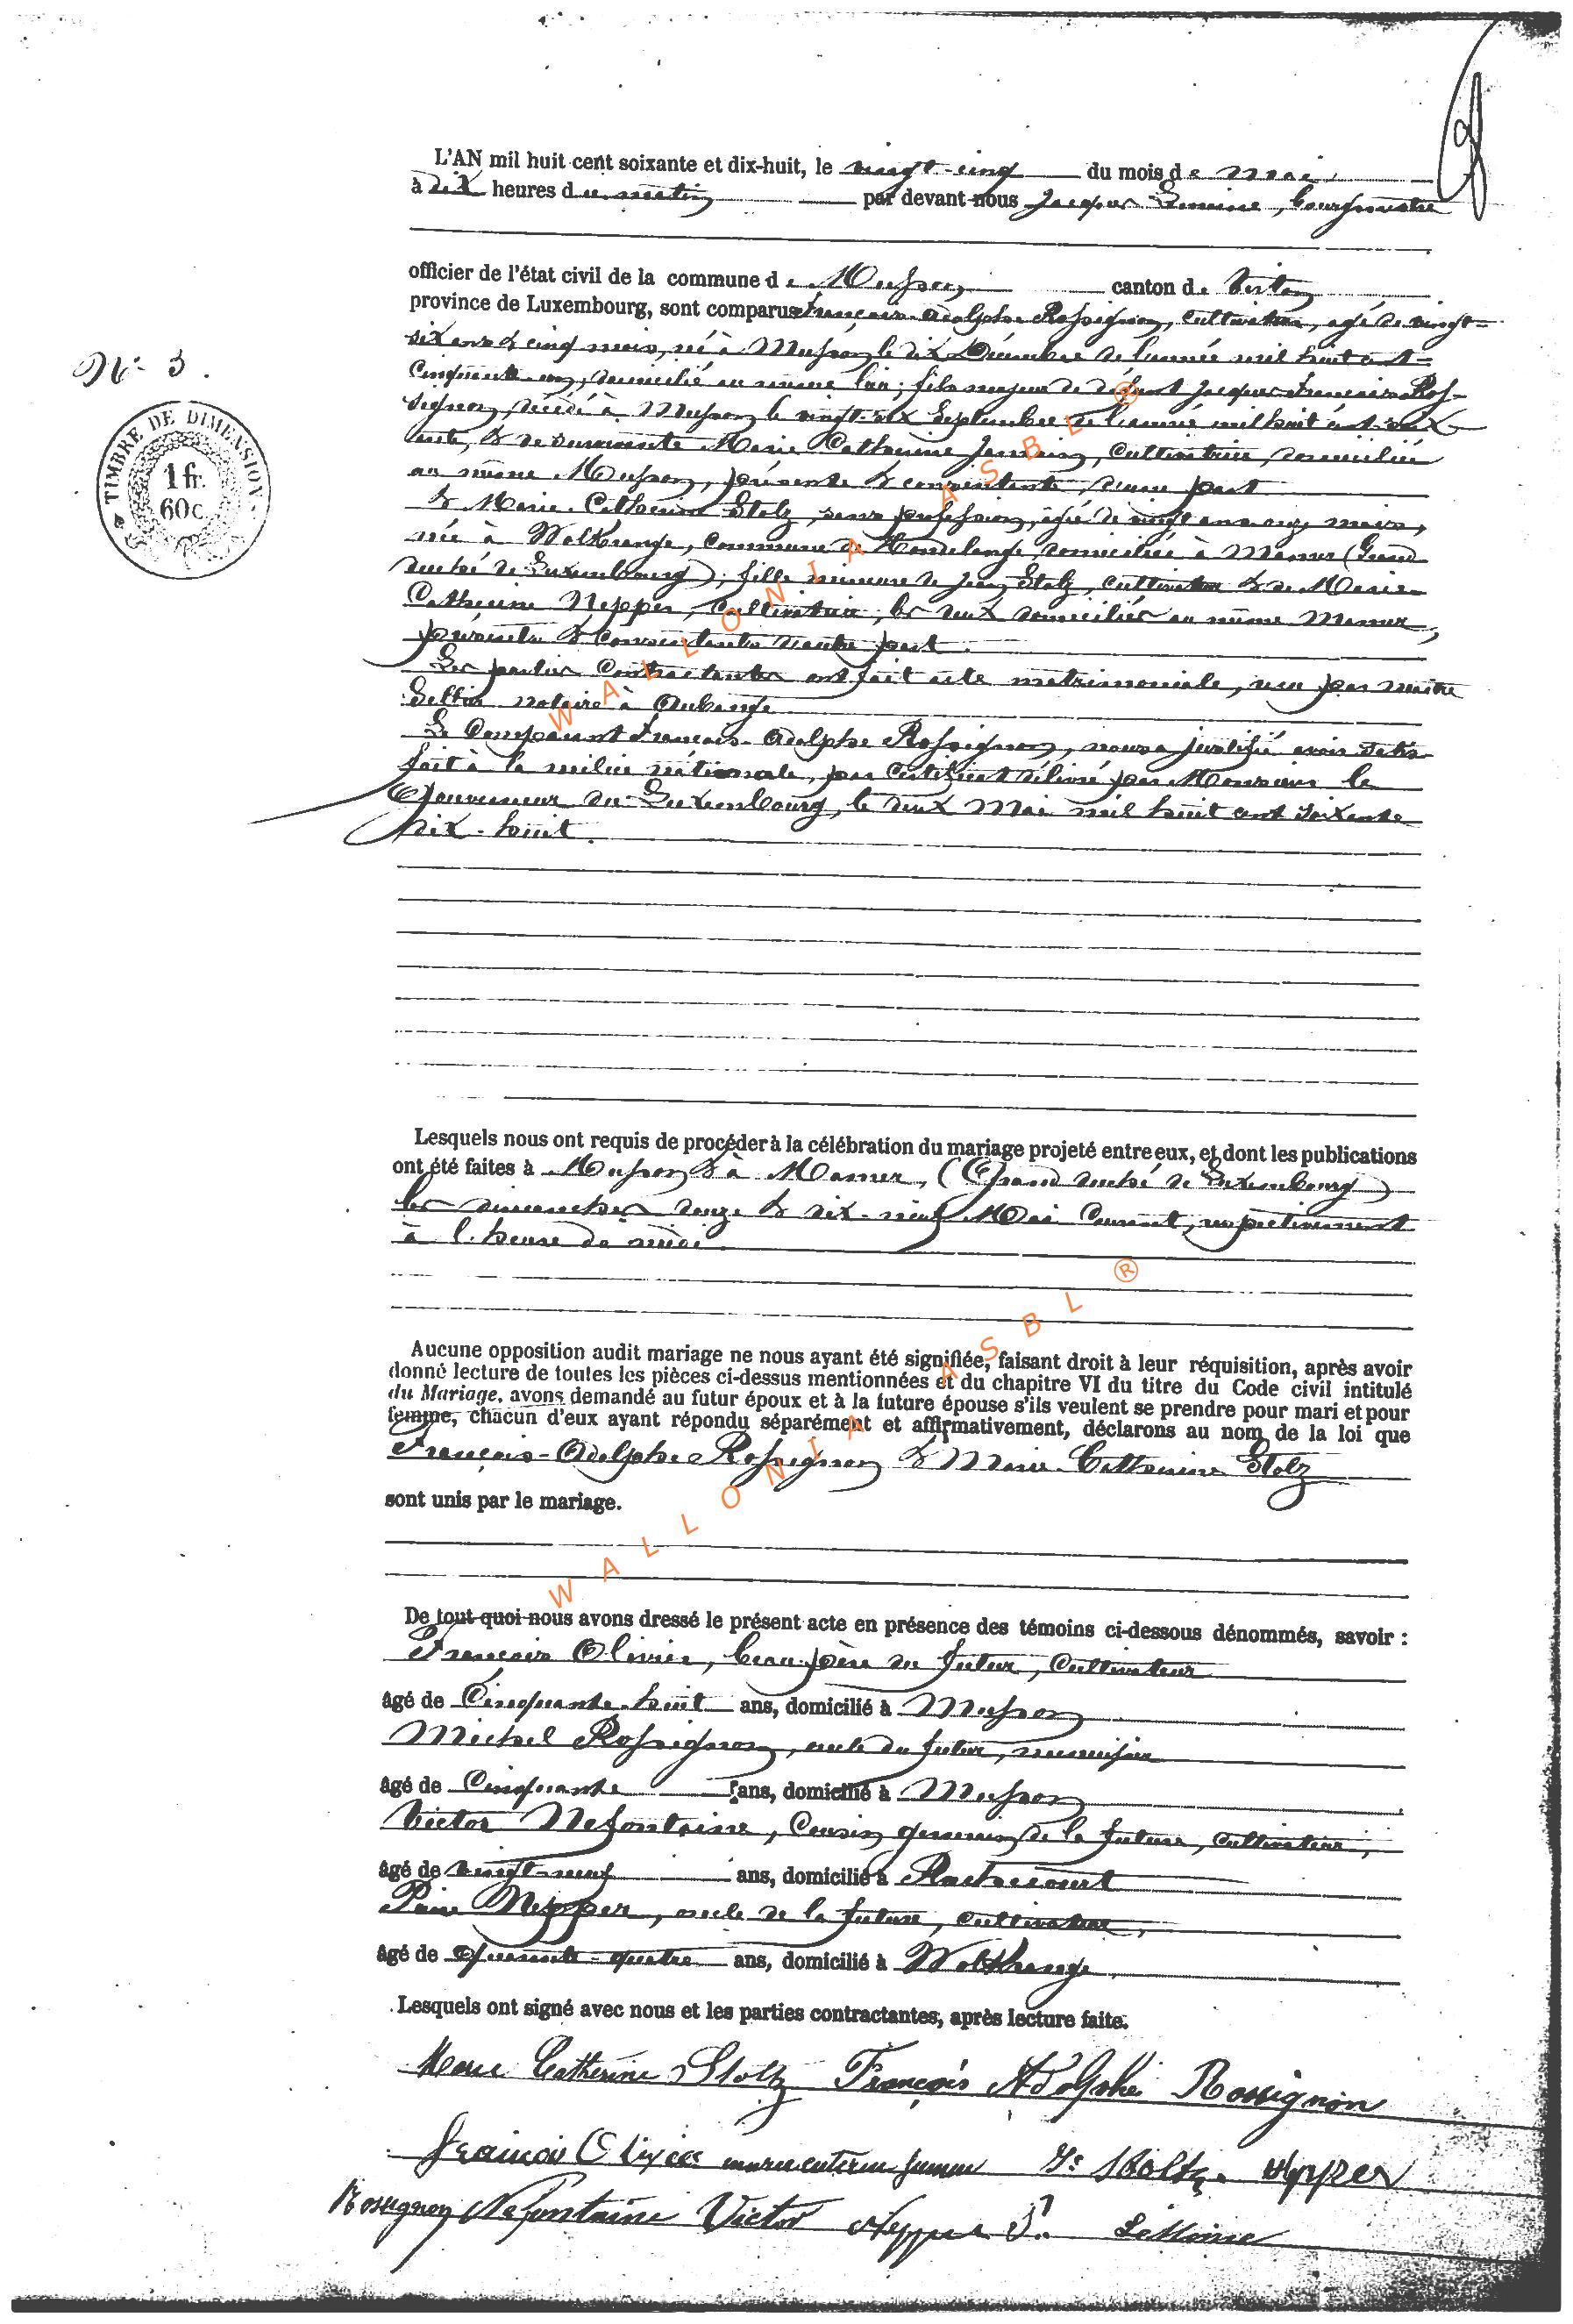 L'AN mil huit cent soixante et dix-huit, le vingt-cinq du mois de Mai
à dix heures du matin par devant nous Jacques Lemoine, bourgmestre
officier de l'état civil de la commune de Musson canton de Virton
province de Luxembourg, sont comparus François-Adolphe Rossignon, cultivateur, âgé de vingt-
six ans & cinq mois, né à Musson le dix Décembre de l'année mil huit cent-
cinquante-un, domicilié au même lieu; fils majeur de défunt Jacques François Ros-
signon, décédé à Musson le vingt-six Septembre de l'année mil huit cent
& de survivante Marie Catherine, cultivatrice, domiciliée
au même Musson, présente & consentante d'une part
& Marie-Catherine Stolz, sans profession, âgée de vingt ans onze mois,
née à Wolkrange, commune de Hondelange, domiciliée à Mamer (Grand
duché de Luxembourg); fille mineure de Jean Stolz, cultivateur & de Marie-
Catherine Nepper, cultivatrice, les deux domiciliés au même Mamer,
présents & consentants d'autre part.
Les parties contractantes ont fait acte matrimoniale, reçu par maître
notaire à Aubange
Le comparant François-Adolphe Rossignon, nous a justifié avoir satis-
fait à la milice nationale, par certificat délivré par Monsieur le
Gouverneur du Luxembourg, le deux Mai mil huit cent soixante
dix-huit.
N° 3.
TIMBRE DE DIMENSION
1 fr.
60 c.
Lesquels nous ont requis de procéder à la célébration du mariage projeté entre eux, et dont les publications
ont été faites à Musson & à Mamer, (Grand duché de Luxembourg)
les dimanches douze & dix-neuf Mai courant, respectivement
à l'heure de midi
Aucune opposition audit mariage ne nous ayant été signifiée, faisant droit à leur réquisition, après avoir
donné lecture de toutes les pièces ci-dessus mentionnées et du chapitre VI du titre du Code civil intitulé
du Mariage, avons demandé au futur époux et à la future épouse s'ils veulent se prendre pour mari et pour
femme, chacun d'eux ayant répondu séparément et affirmativement, déclarons au nom de la loi que
François-Adolphe Rossignon & Marie-Catherine Stolz
sont unis par le mariage.
De tout quoi nous avons dressé le présent acte en présence des témoins ci-dessous dénommés, savoir :
François Olivier, beau-père du futur, cultivateur
âgé de Cinquante-huit ans, domicilié à Musson
Michel Rossignon, oncle du futur, menuisier
âgé de Cinquante ans, domicilié à Musson
Victor Nefontaine, Cousin germain de la future, cultivateur,
âgé de vingt-neuf ans, domicilié à Rachecourt
Pierre Nepper, oncle de la future, cultivateur,
âgé de Quarante-quatre ans, domicilié à Wolkrange
Lesquels ont signé avec nous et les parties contractantes, après lecture faite.
Marie Catherine Stoltz François Adolphe Rossignon
François Olivier Stoltz Nepper
Rossignon Nefontaine Victor Nepper P. Lemoine
WALLONIA ASBL ®
WALLONIA ASBL ®